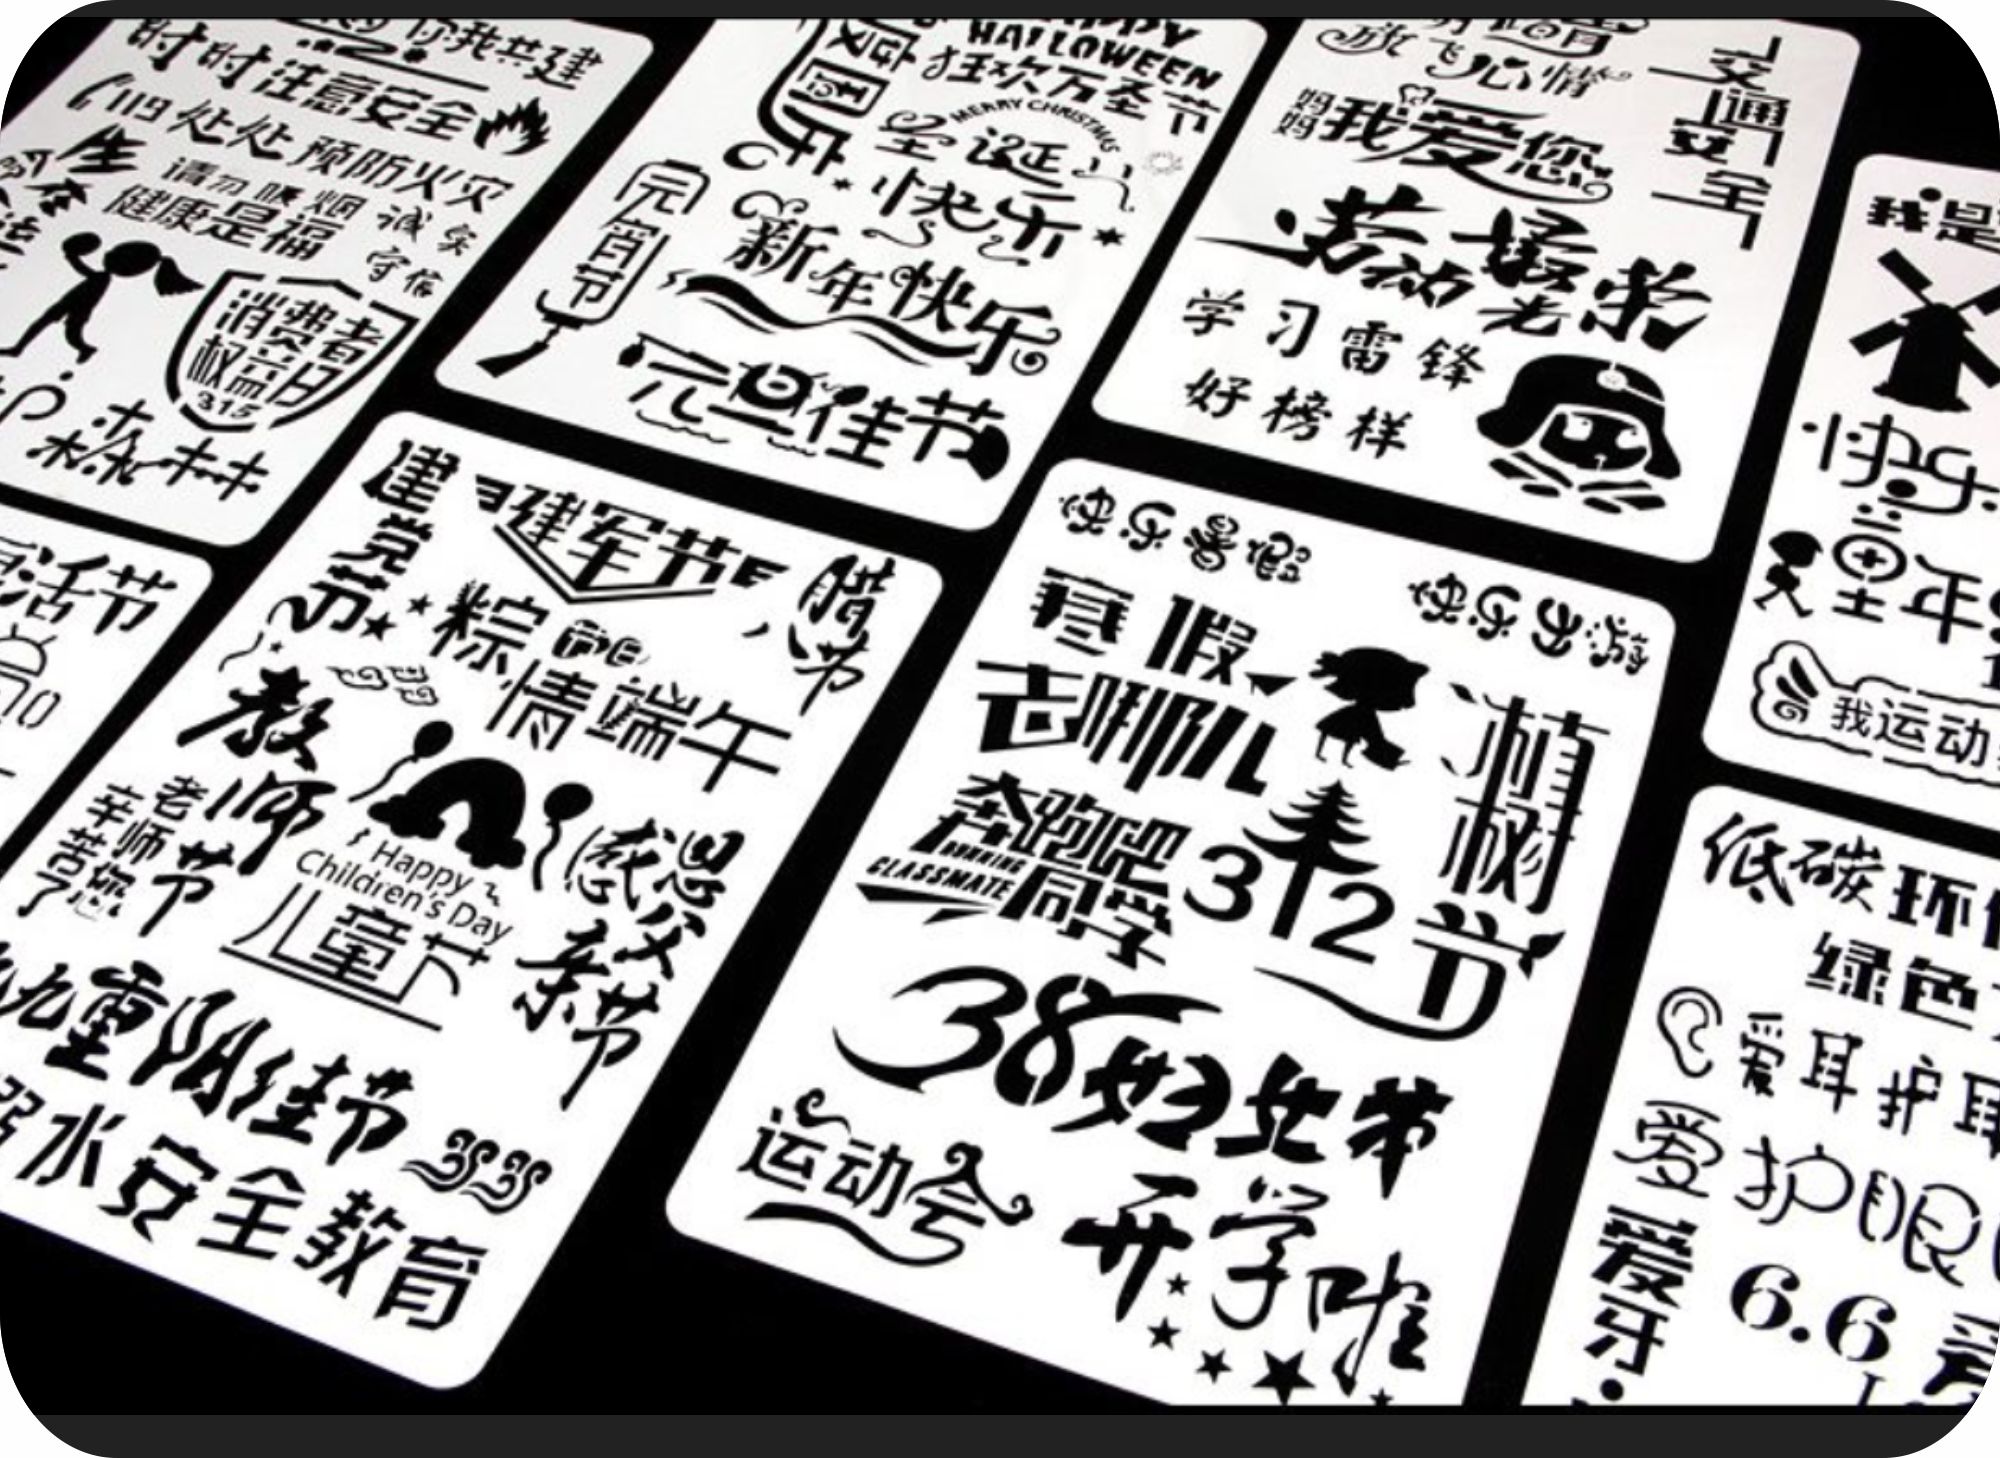 你我共建
时时注意安全
119处处预防火灾
请勿吸烟
诚实
守信
健康是福
消费者
权益日
315
HALLOWEEN
狂欢万圣节
MERRY CHRISTMAS
圣诞
快乐
元宵节
新年快乐
元旦佳节
放飞心情
交通
安全
妈妈
我爱您
劳动最
光荣
学习雷锋
好榜样
我是
快乐
童年
我运动
活节
建党节
建军节
腊八节
粽情端午
教师节
老师
辛苦您了
Happy
Children's Day
儿童节
感恩
父亲节
九重阳佳节
溺水安全教育
快乐暑假
快乐出游
寒假
去哪儿
植树节
312
奔跑吧
RUNNING
CLASSMATE
同学
38妇女节
运动会
开学啦
低碳环
绿色
爱耳护耳
爱护眼
爱牙
6.6